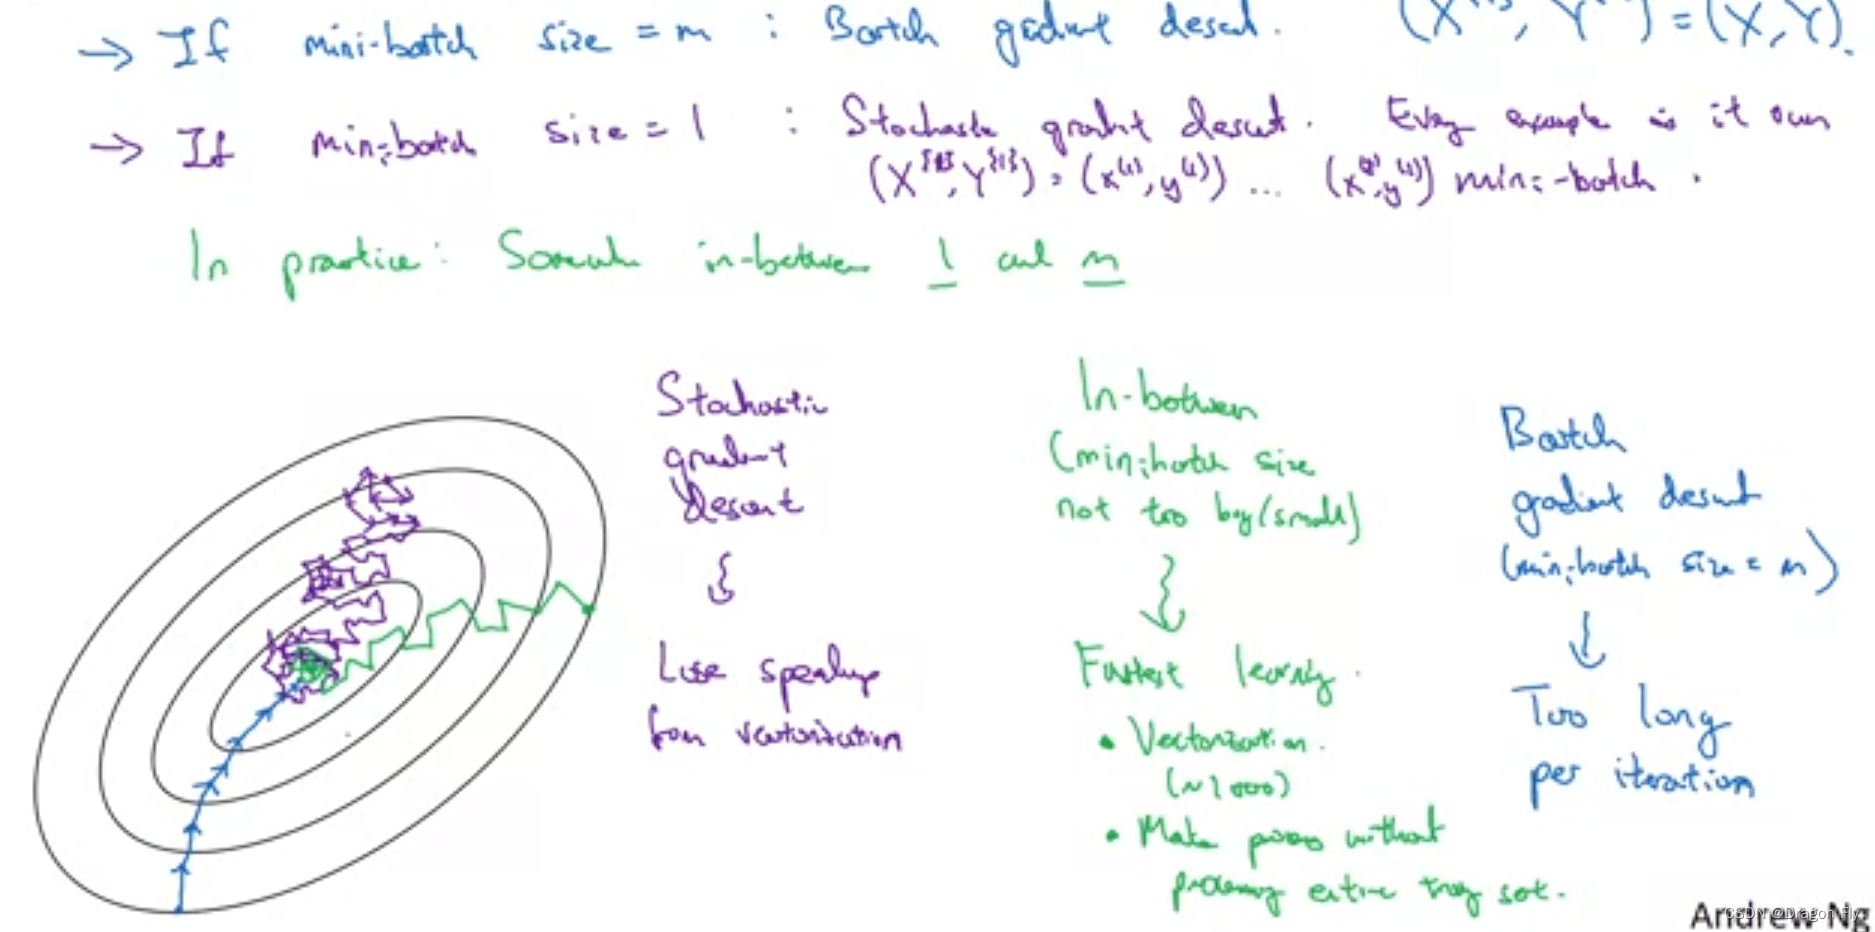 → If mini-batch size = m : Batch gradient descent. (X^{1}, Y^{1}) = (X, Y).
→ If mini-batch size = 1 : Stochastic gradient descent. Every example is it own
(X^{1}, Y^{1}) = (x^(1), y^(1)) ... mini-batch.
In practice: Somewhere in-between 1 and m
Stochastic
gradient
descent
Lose speedup
from vectorization
In-between
(mini-batch size
not too big/small)
Fastest learning.
• Vectorization.
(~1000)
• Make progress without
processing entire training set.
Batch
gradient descent
(mini-batch size = m)
Too long
per iteration
Andrew Ng
CSDN @Dragon Fly